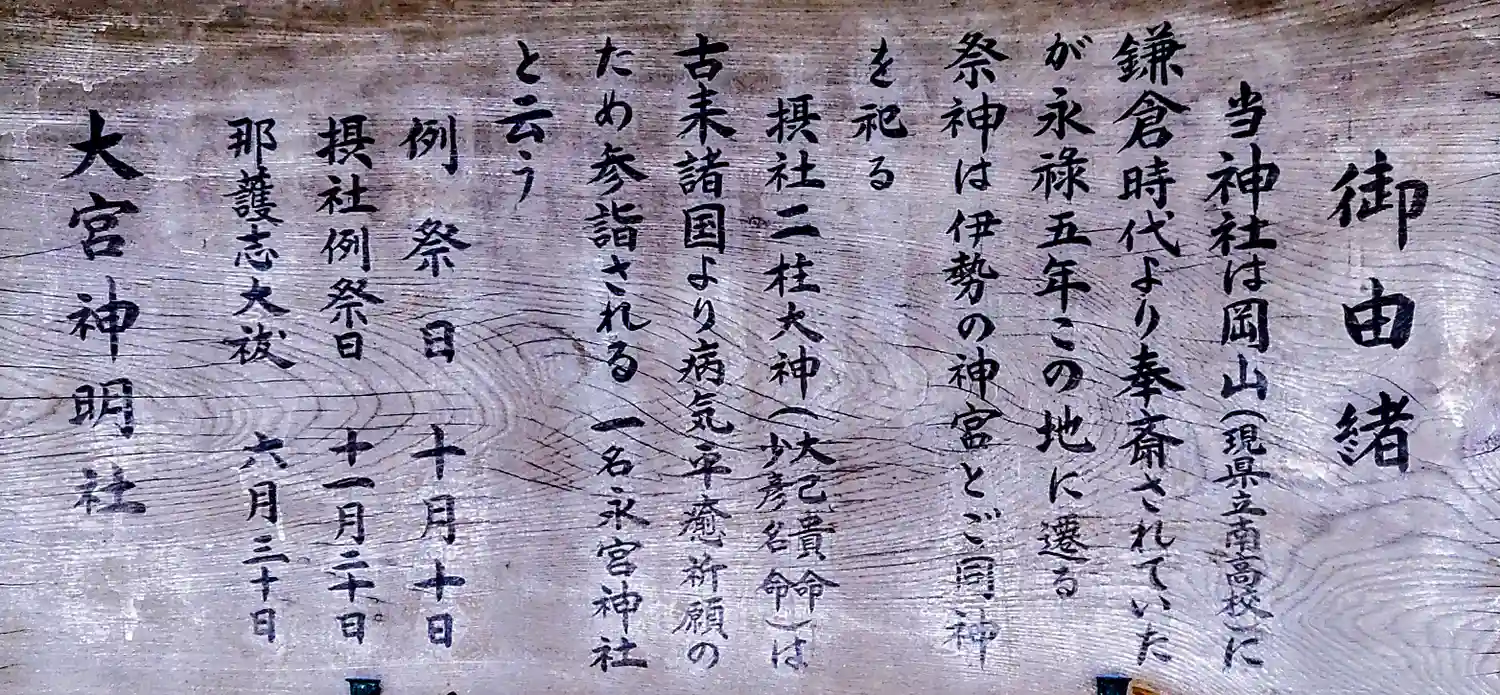 御由緒
当神社は岡山(現県立南高校)に
鎌倉時代より奉斎されていた
が永禄五年この地に遷る
祭神は伊勢の神宮とご同神
を祀る
摂社二柱大神(大己貴命少彦名命)は
古来諸国より病気平癒祈願の
ため参詣される 一名永宮神社
と云う
例祭日 十月十日
摂社例祭日 十一月二十日
那護志大祓 六月三十日
大宮神明社